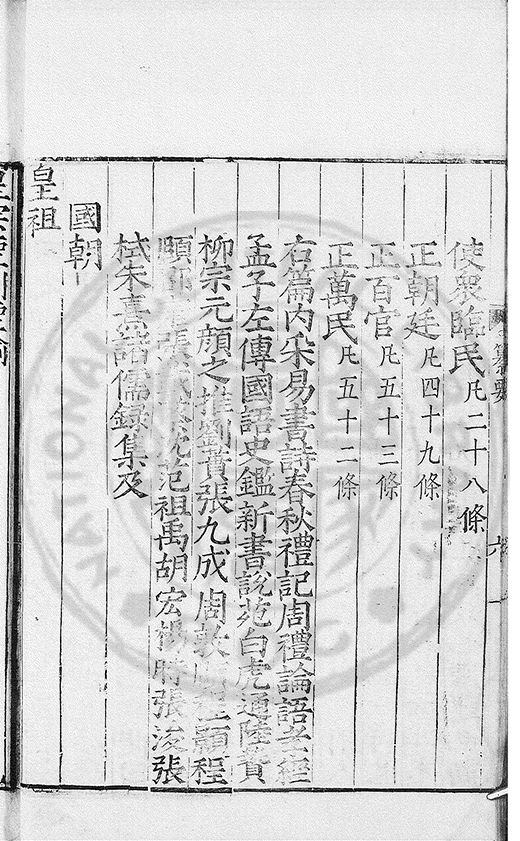 使衆臨民凡二十八條
正朝廷凡四十九條
正百官凡五十三條
正萬民凡五十二條
右篇内采易書詩春秋禮記周禮論語孝經
孟子左傳國語史鑑新書說苑白虎通陸賈
柳宗元顔之推劉蕡張九成周敦頤程顥程
頤張范祖禹胡宏楊時張浚張
栻朱熹諸儒録集及
國朝
皇祖
纂要
六